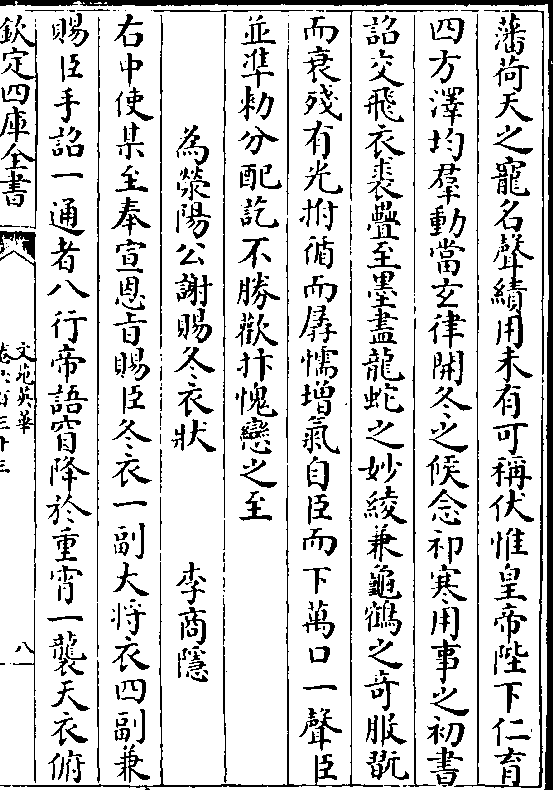 藩荷天之寵名聲績用未有可稱伏惟皇帝陛下仁育
四方澤均羣動當玄律開冬之候念祁寒用事之初書
詔交飛衣裘疊至墨盡龍蛇之妙綾兼龜鶴之竒服翫
而衰殘有光拊循而孱懦增氣自臣而下萬口一聲臣
並準勅分配訖不勝歡抃愧戀之至
為滎陽公謝賜冬衣狀 李商隱
右中使某至奉宣恩旨賜臣冬衣一副大將衣四副兼
賜臣手詔一通者八行帝語窅降於重霄一襲天衣俯
欽定四庫全書
文苑英華
卷六百三十三
八